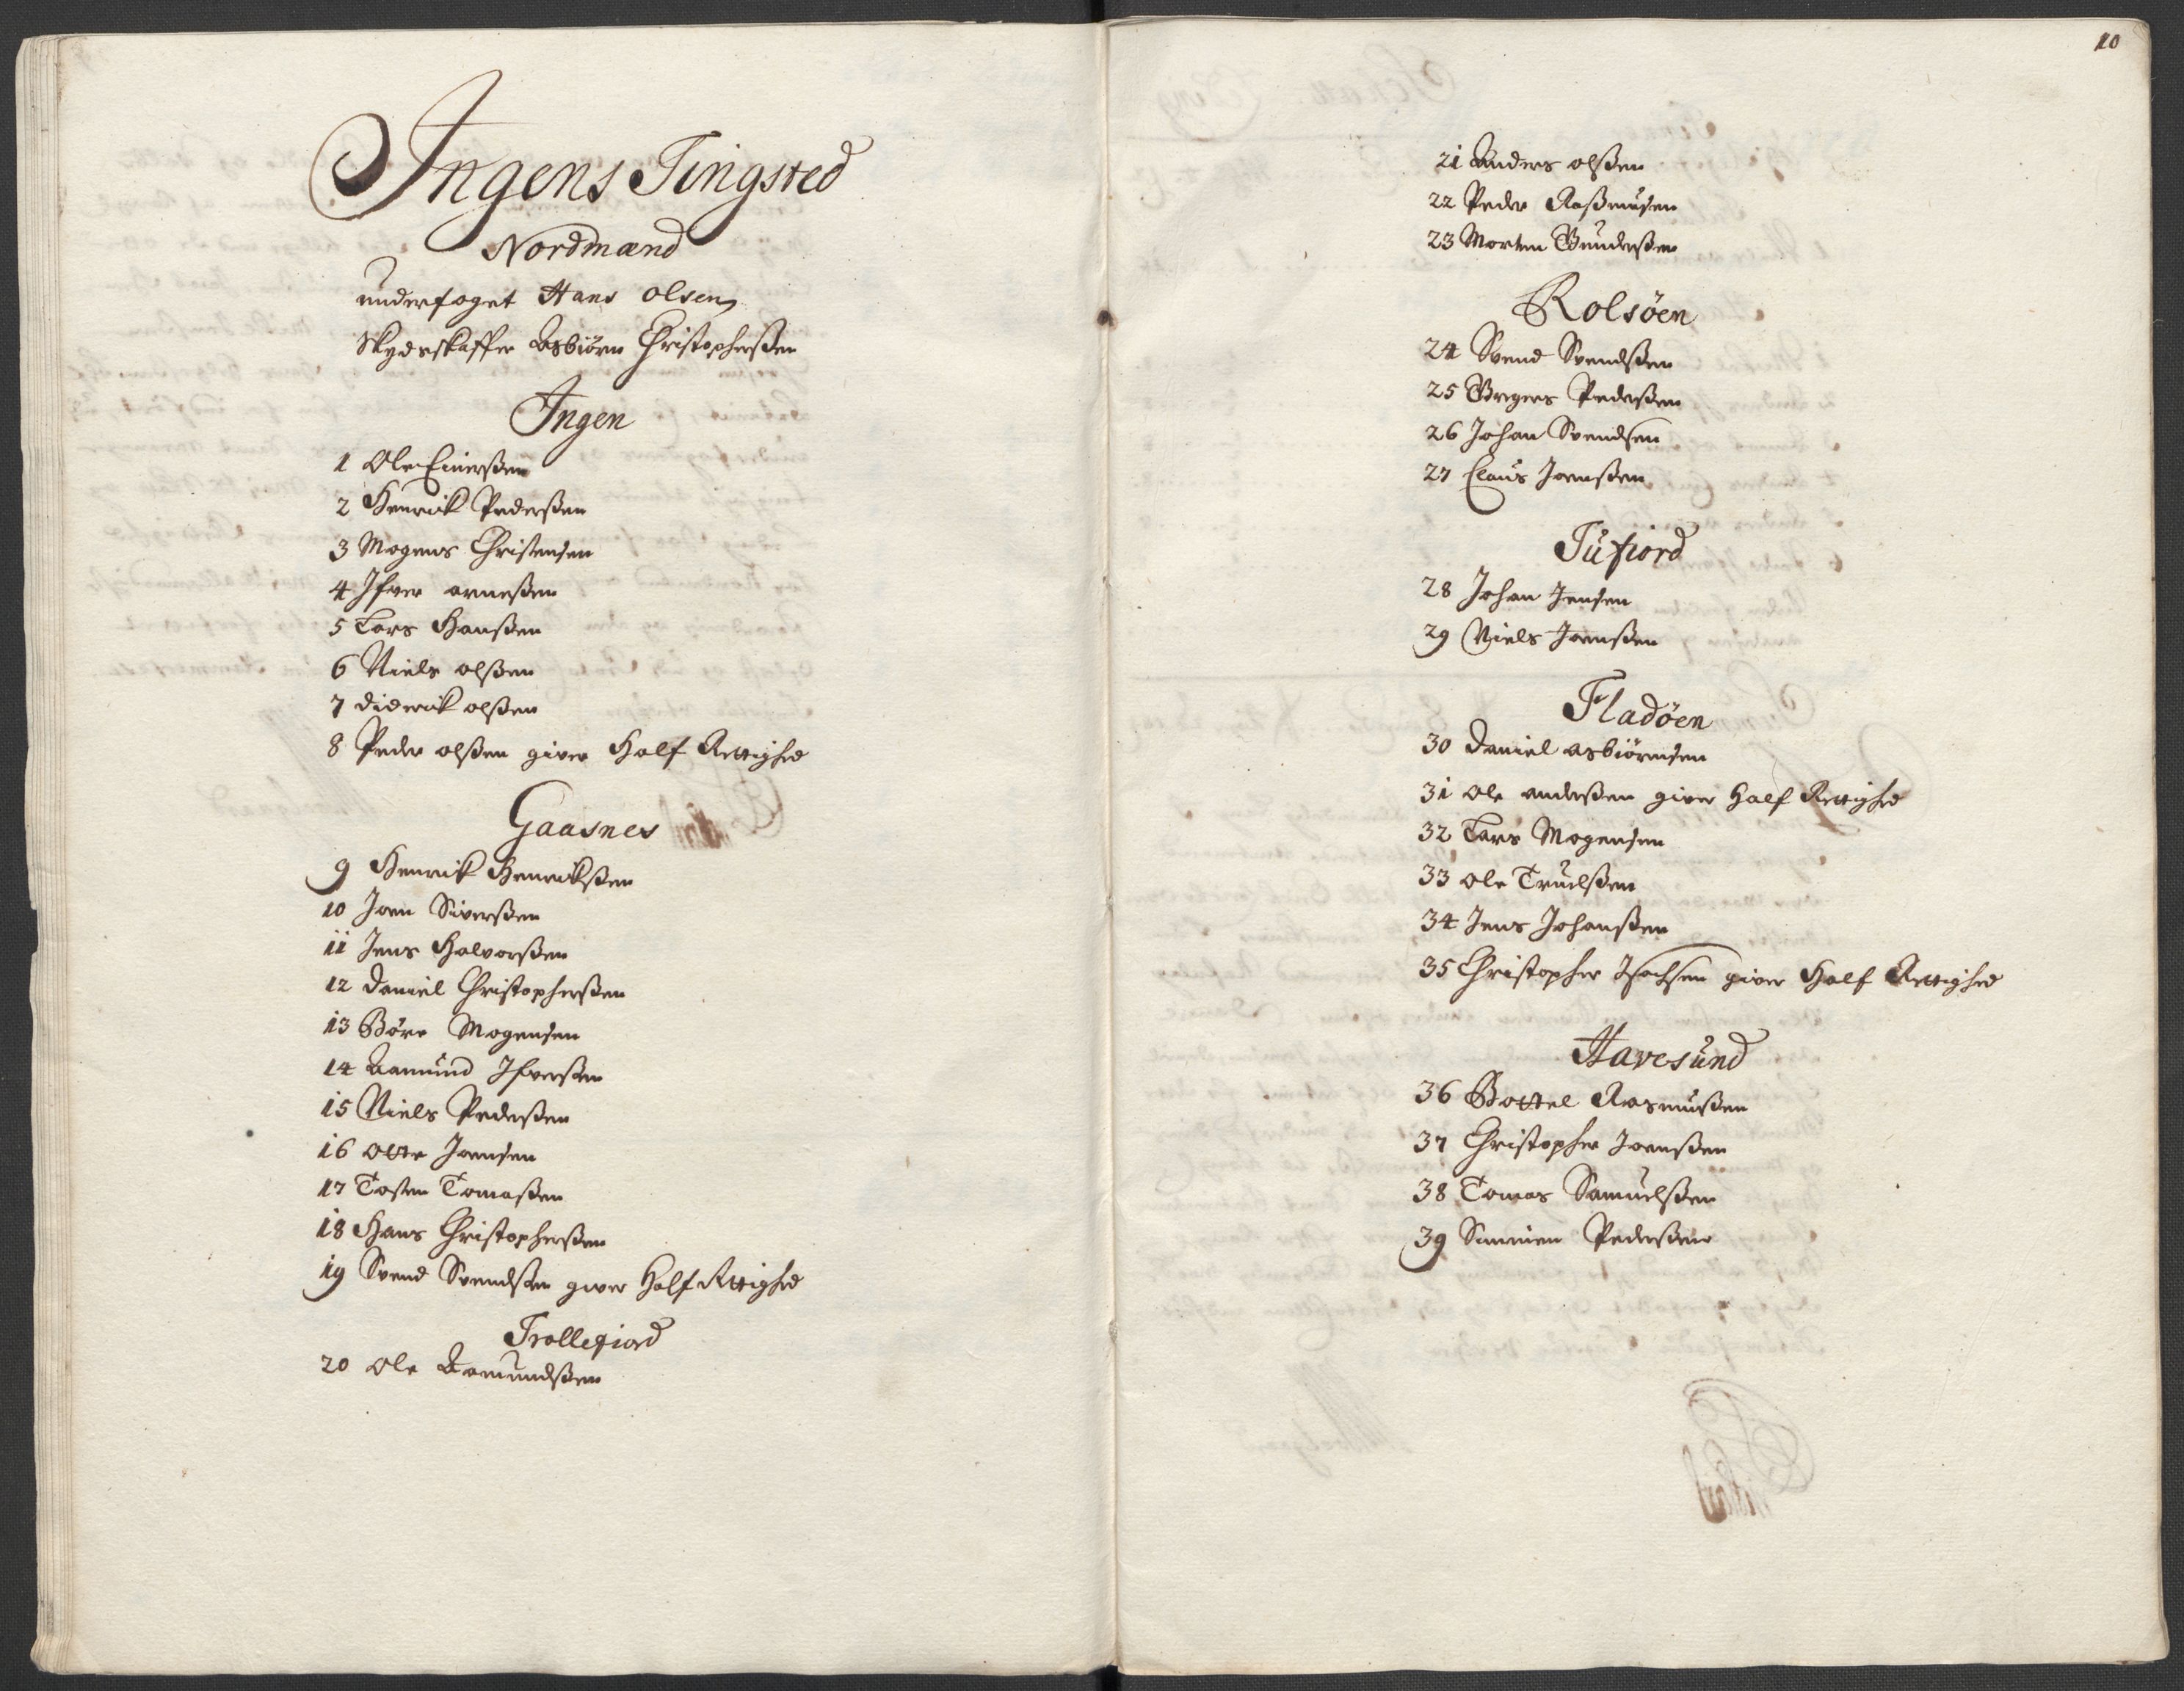 Ingens Tingsted
Nordmænd
underfoget Hans olsen
Skydsskaffer Asbiörn Christopherßen
Ingen
1 Ole Einerßen
2 Henrich Pederßen
3 Mogens Christensen
4 Ifver arneßen
5 Lars Hanßen
6 Niels olßen
7 diderich olßen
8 Peder olßen giver Half Rettighed
Gaasnes
9 Henrich Henrichßen
10 Joen Siverßen
11 Jens Halvorßen
12 Daniel Christopherßen
13 Böre Mogensen
14 Aamund Ifverßen
15 Niels Pederßen
16 Otte Joensen
17 Tosten Tomaßen
18 Hans Christopherßen
19 Svend Svendßen giver Half Rettighed
Trollefiord
20 Ole Aamundßen
10
21 Anders olßen
22 Peder Raßmusen
23 Morten Gunderßen
Rolsöen
24 Svend Svendßen
25 Greger Pederßen
26 Johan Svendsen
27 Claus Joenßen
Tufiord
28 Johan Jensen
29 Niels Joenßen
Fladöen
30 Daniel asbiörnsen
31 Ole anderßen giver Half Rettighed
32 Lars Mogensen
33 Ole Truelßen
34 Jens Johanßen
35 Christopher Isachsen giver Half Rettighed
Havesund
36 Bottel Rasmußen
37 Christopher Joenßen
38 Tomas Samuelßen
39 Simmen Pederßen